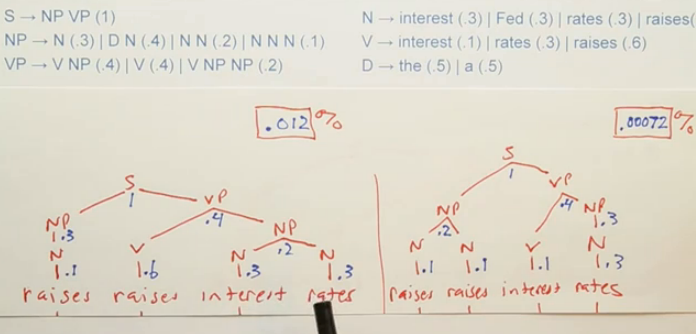 S → NP VP (1)
NP → N (.3) | D N (.4) | N N (.2) | N N N (.1)
VP → V NP (.4) | V (.4) | V NP NP (.2)
N → interest (.3) | Fed (.3) | rates (.3) | raises(
V → interest (.1) | rates (.3) | raises (.6)
D → the (.5) | a (.5)
.012 %
S
1
NP VP
.3 .4
N V NP
.2
N N
.1 .6 .3 .3
raises raises interest rates
.00072 %
S
1
NP VP
.2 .4
NP
.3
N N V N
.1 .1 .1 .3
raises raises interest rates